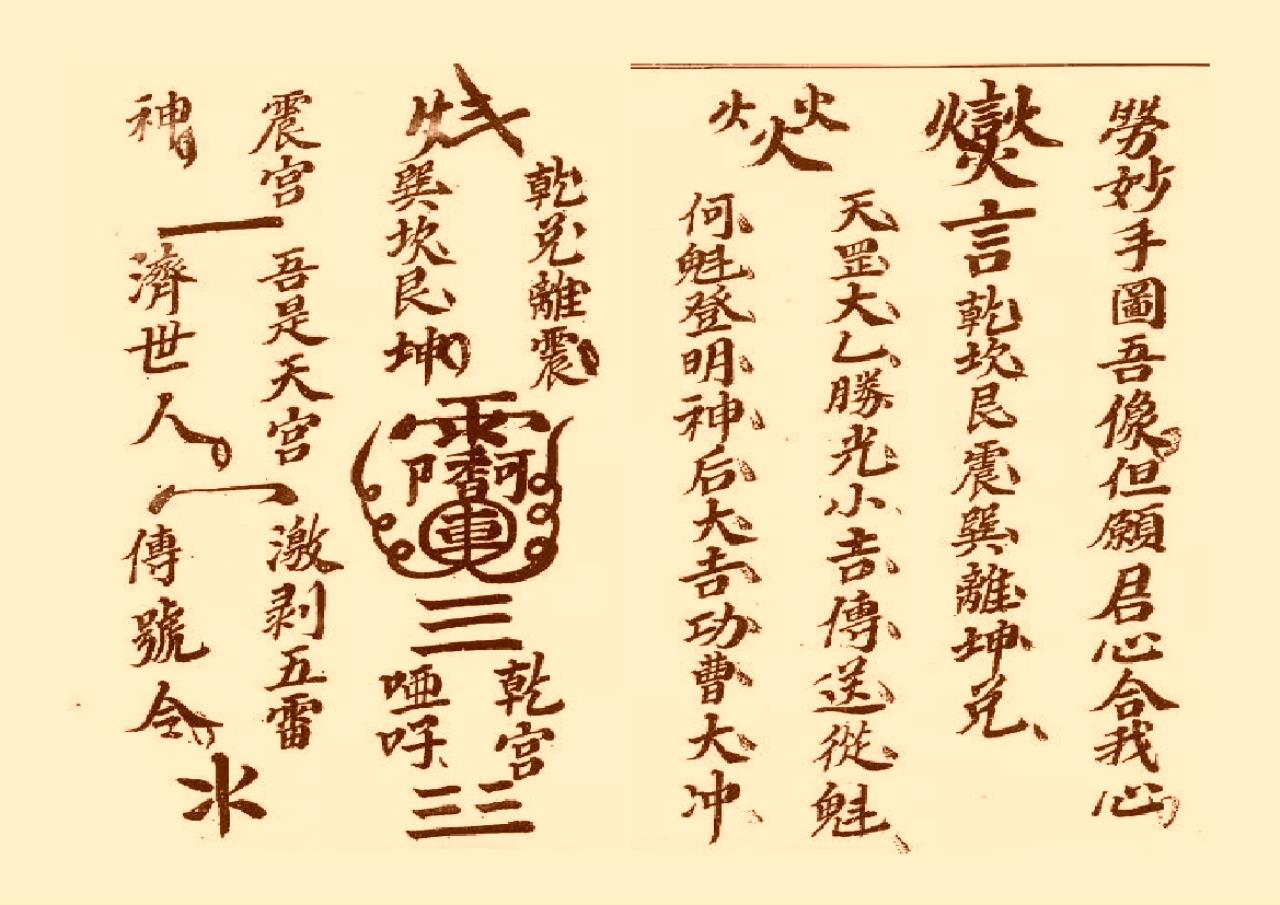 勞妙手圖吾像但願君心合我心
言乾坎艮震巽離坤兌
天罡大乙勝光小吉傳送從魁
何魁登明神后大吉功曹大冲
乾兌離震
巽坎艮坤
三
乾宮
啞吇
三三
震宮
神
一
吾是天宮
濟世人
一
激剥五雷
傳號令
水